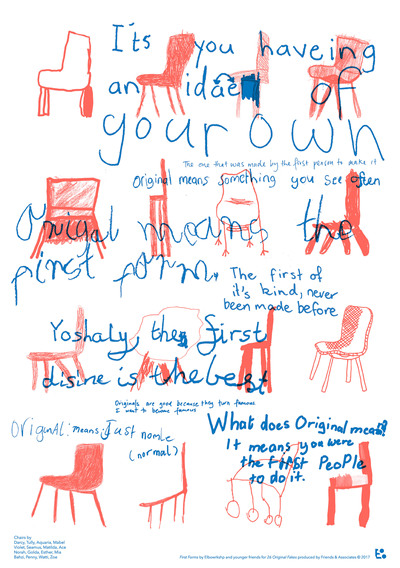 It's you haveing
an idae of
your own
The one that was made by the first person to make it
Original means something you see often
Origal means the
first form
The first of
it's kind, never
been made before
Yoshaly, the first
disine is the best
Originals are good because they turn famouse
I want to become famous
ORiginAl: means: Just nomle
(normal)
What does Original mean?
It means you were
the fiRst PeoPle
to do it.
Chairs by
Darcy, Tully, Aquaria, Mabel
Violet, Seamus, Matilda, Ace
Norah, Golda, Esther, Mia
First Forms by Fillosertsky and younger friends for 26 Original Fakes produced by Friends & Associates © 2017